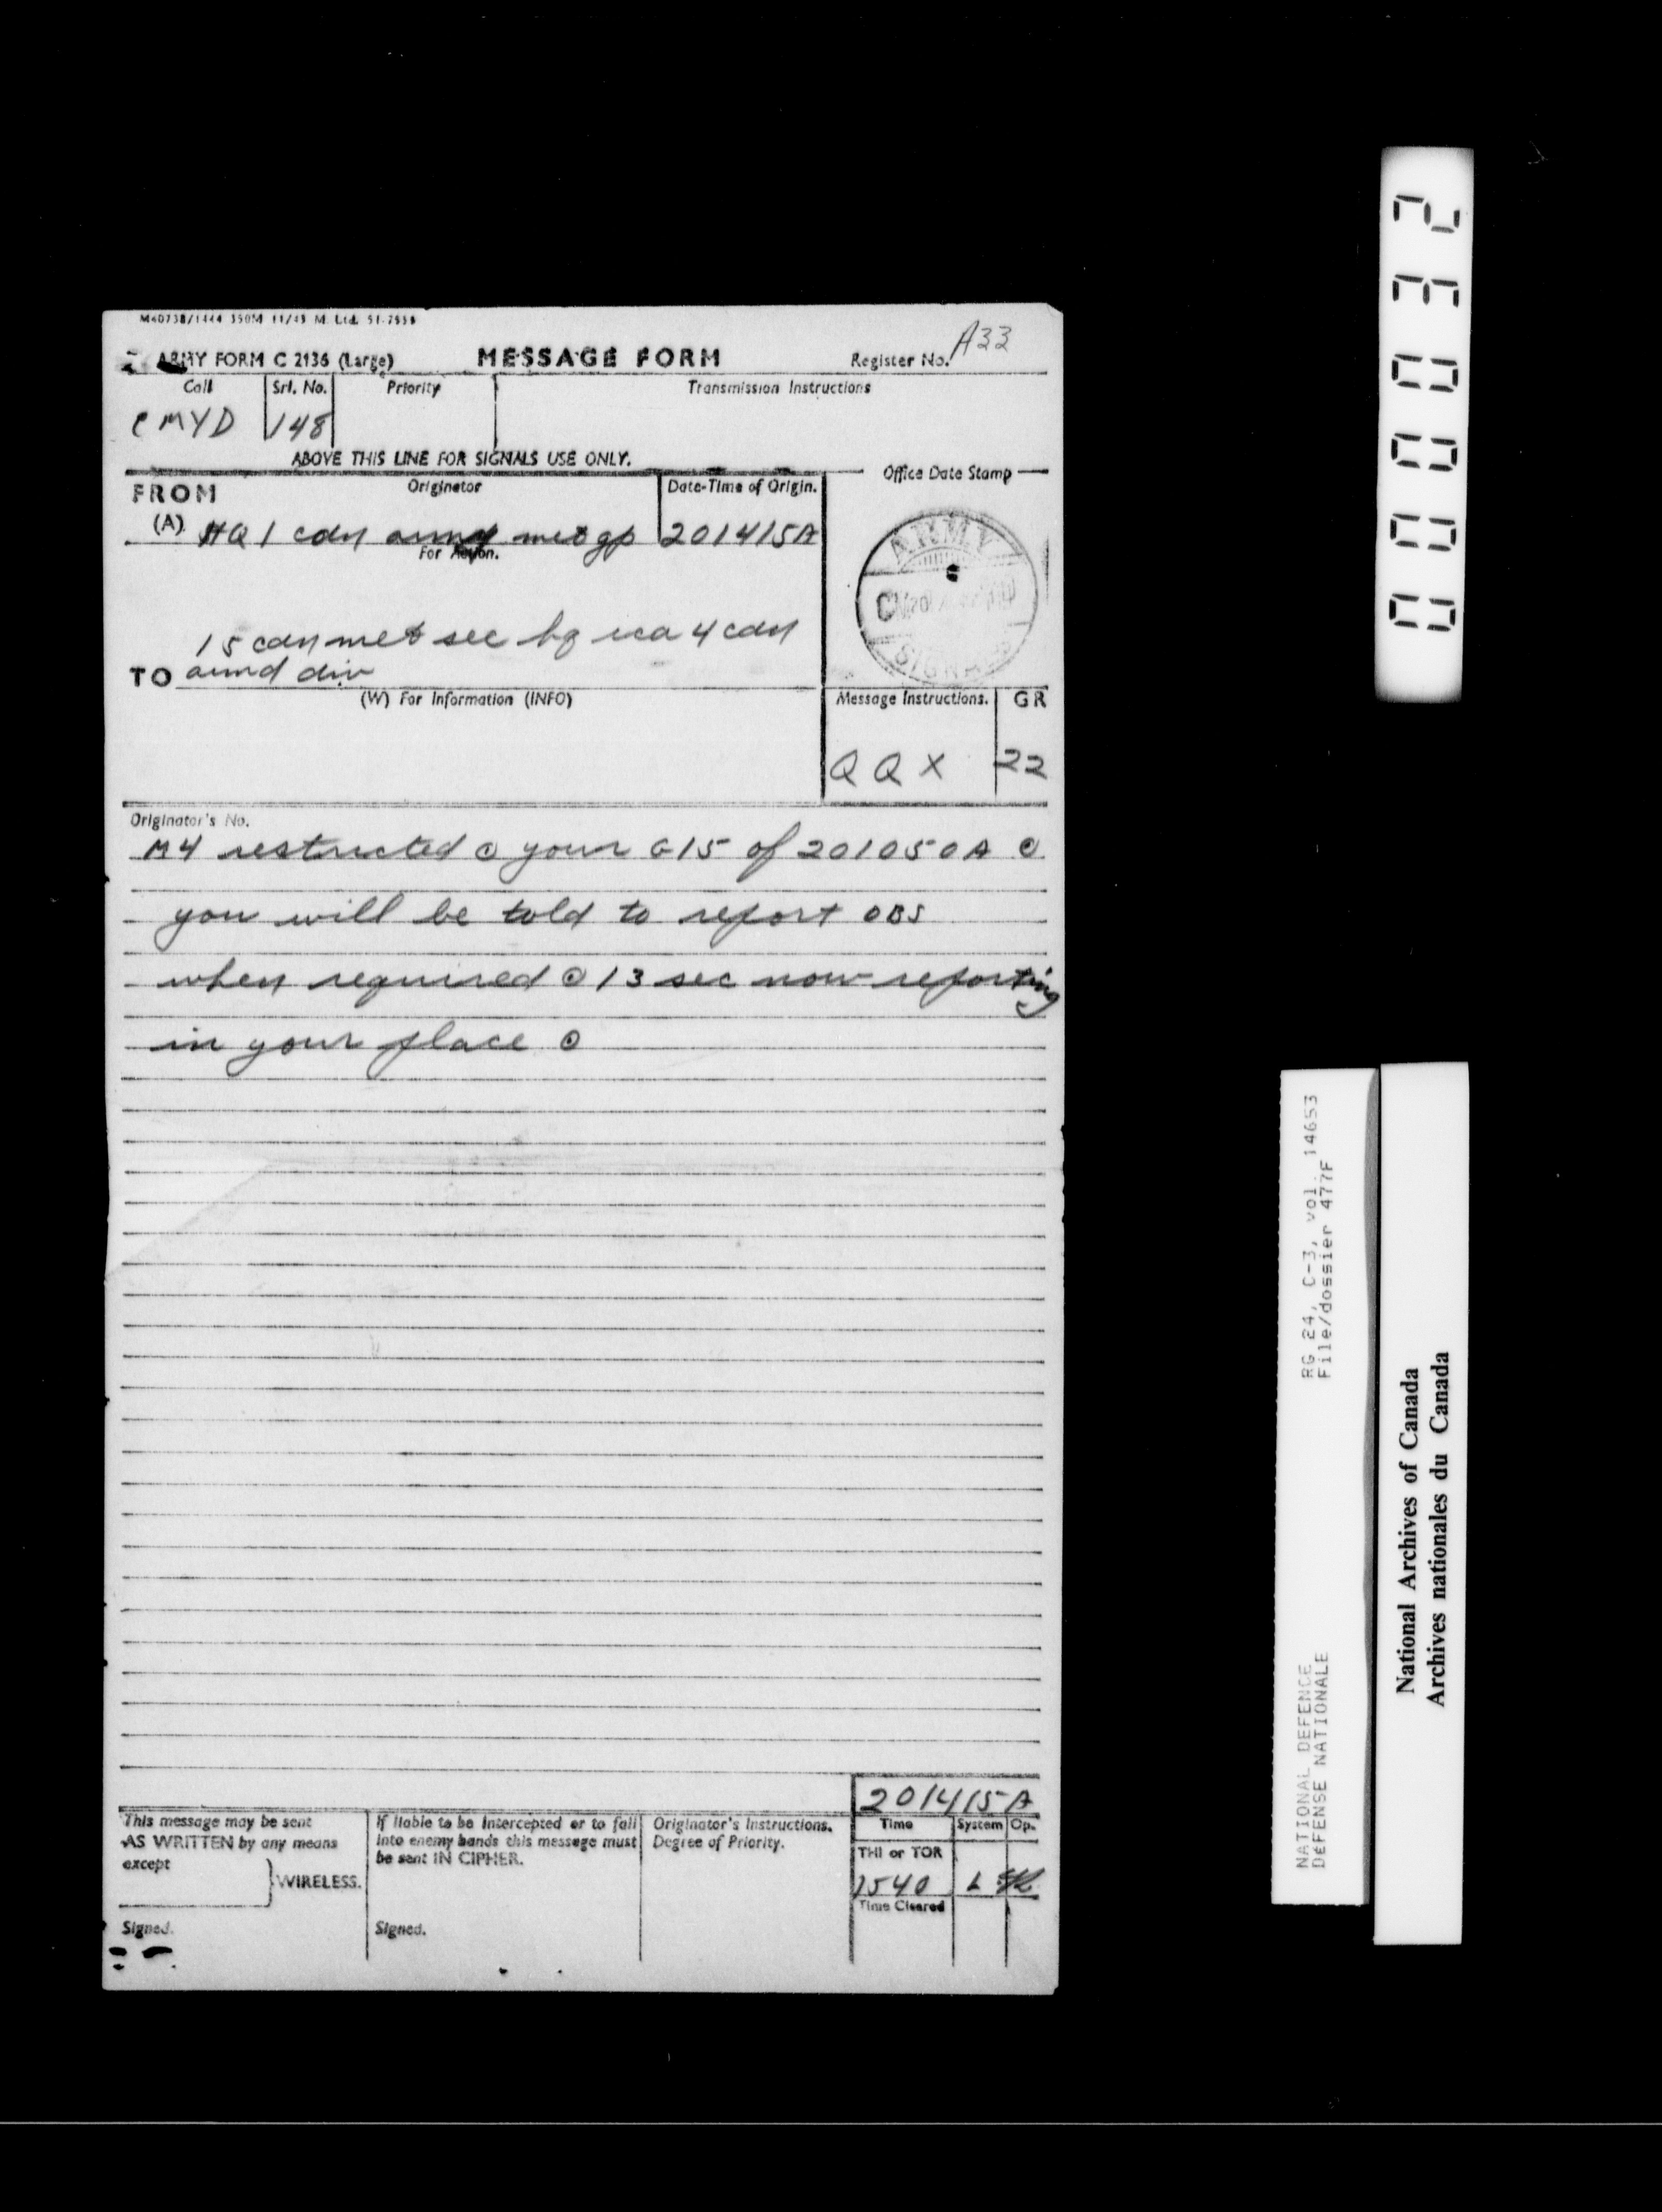 M40738/1444 350M 11/43 M. Ltd. 51-7559
ARMY FORM C 2136 (Large) MESSAGE FORM Register No. A33
Call Srl. No. Priority Transmission Instructions
CMYD 148
ABOVE THIS LINE FOR SIGNALS USE ONLY.
FROM Originator Date-Time of Origin. Office Date Stamp
(A) HQ 1 cdn army met gp 201415A
For Action.
ARMY
20
SIGNALS
15 cdn met sec hq rca 4 cdn
TO armd div
(W) For Information (INFO) Message Instructions. GR
QQX 22
Originator's No.
M4 restricted ⊙ your G15 of 201050A ⊙
you will be told to report OBS
when required ⊙ 13 sec now reporting
in your place ⊙
201415A
This message may be sent
AS WRITTEN by any means
except
WIRELESS.
Signed.
If liable to be intercepted or to fall
into enemy hands this message must
be sent IN CIPHER.
Signed.
Originator's Instructions.
Degree of Priority.
Time System Op.
THI or TOR
1540 L
Time Cleared
000032
RG 24, C-3, vol. 14653
File/dossier 477F
NATIONAL DEFENCE
DEFENSE NATIONALE
National Archives of Canada
Archives nationales du Canada